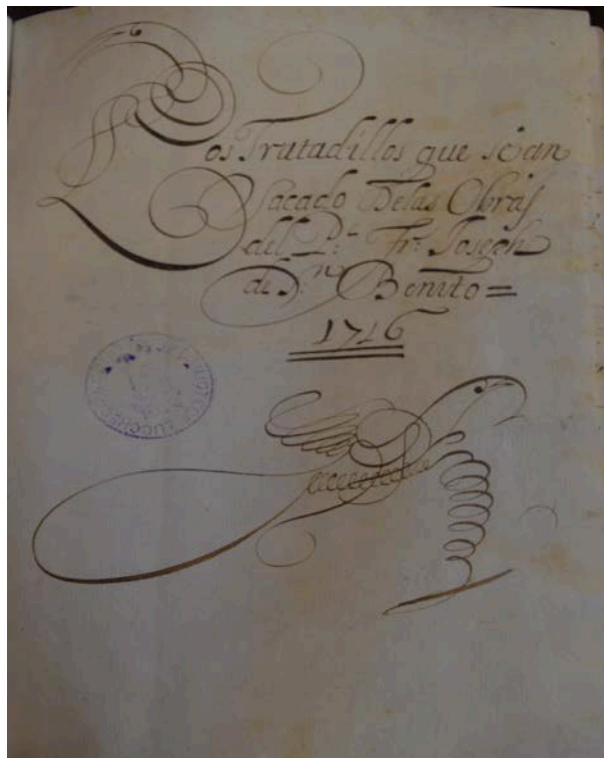 Los Tratadillos que sean
Sacado Delas Obras
del P.ᵉ Fr. Joseph
de S.ⁿ Benito =
1716